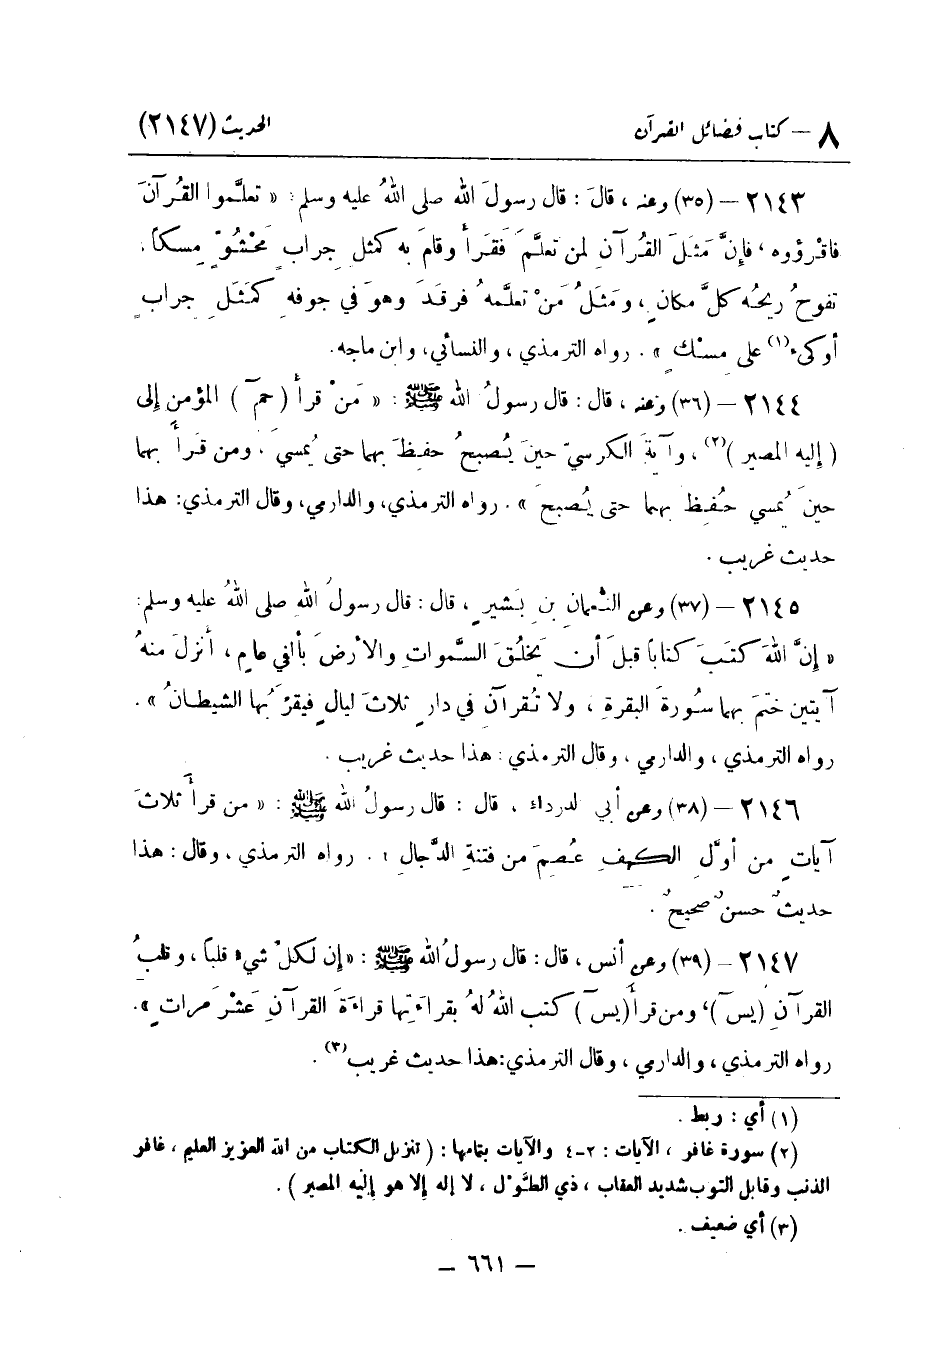 ٨ – كتاب فضائل القرآن الحديث (٢١٤٧)
٢١٤٣ – (٣٥) وعنه ، قالَ : قال رسولَ الله صلى اللهُ عليه وسلم : « تعلَّموا القُرآنَ
فاقرؤوه ، فإنَّ مَثَلَ القُرآنِ لمن تعلَّمَ فَقَرأَ وقامَ به كَمثلِ جرابٍ مَحْشُوٍّ مِسكاً ،
تفوحُ ريحُه كلَّ مكانٍ ، ومَثَلُ مَنْ تعلَّمهُ فرقَدَ وهوَ في جوفهِ كَمَثَلِ جرابٍ
أوكىء(١) على مسْكٍ » . رواه الترمذي ، والنسائي، وابن ماجه.
٢١٤٤ – (٣٦) وعنه ، قال : قال رسولُ الله ﷺ : « مَنْ قرأَ ( حمۤ ) المؤمنِ إلى
( إليه المصير )(٢) ، وآيةَ الكرسيّ حينَ يُصبحُ حفيظَ بهما حتى يُمسيَ . ومن قرأَ بهما
حينَ يُمسي حُفِظ بهما حتى يُصبحَ » . رواه الترمذي، والدارمي، وقال الترمذي: هذا
حديث غريب .
٢١٤٥ – (٣٧) وعن النُّعمانِ بنِ بَشيرٍ ، قال : قال رسولُ اللهِ صلى اللهُ عليه وسلم:
« إنَّ اللهَ كتَبَ كتاباً قبلَ أن يَخلُقَ السَّمواتِ والأرضَ بألفي عامٍ ، أنزلَ منهُ
آيتين ختَمَ بهما سُورةَ البقرةِ ، ولا تُقرآنِ في دارٍ ثلاثَ ليالٍ فيقرَبُها الشيطانُ » .
رواه الترمذي ، والدارمي ، وقال الترمذي : هذا حديث غريب .
٢١٤٦ – (٣٨) وعن أبي الدرداء ، قال : قال رسولُ الله ﷺ : « من قرأَ ثلاثَ
آياتٍ من أوَّلِ الكهفِ عُصِمَ من فتنةِ الدَّجالِ » . رواه الترمذي ، وقال : هذا
حديثٌ حسنٌ صحيحٌ .
٢١٤٧ – (٣٩) وعن أنس ، قال : قال رسولُ الله ﷺ : « إن لكلِّ شيءٍ قلباً ، وقلبُ
القرآنِ (يسۤ) ، ومن قرأَ (يسۤ) كتب اللهُ لهُ بقراءَتِها قراءَةَ القرآنِ عَشْرَ مراتٍ » .
رواه الترمذي ، والدارمي ، وقال الترمذي: هذا حديث غريب(٣) .
(١) أي : ربط .
(٢) سورة غافر ، الآيات : ٢-٤ والآيات بتمامها : ( تنزيل الكتاب من الله العزيز العليم ، غافر
الذنب وقابل التوب شديد العقاب ، ذي الطَّوْل ، لا إله إلا هو إليه المصير ) .
(٣) أي ضعيف .
– ٦٦١ –